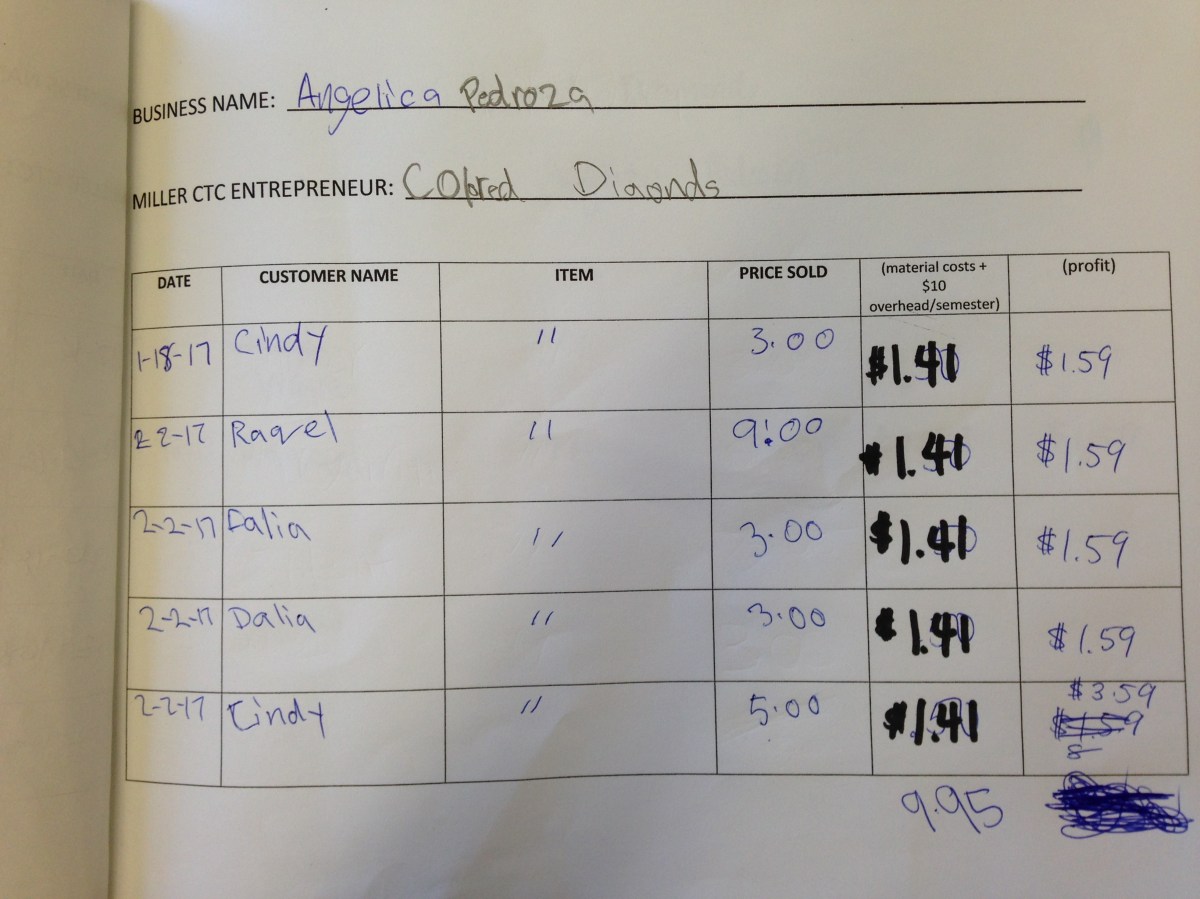 BUSINESS NAME: Angelica Pedroza
MILLER CTC ENTREPRENEUR: Colored Diaonds
DATE CUSTOMER NAME ITEM PRICE SOLD (material costs + $10 overhead/semester) (profit)
1-18-17 Cindy " 3.00 $1.41 $1.59
2-2-17 Raquel " 9:00 $1.41 $1.59
2-2-17 Dalia " 3.00 $1.41 $1.59
2-2-17 Dalia " 3.00 $1.41 $1.59
2-2-17 Cindy " 5.00 $1.41 $3.59
9.95